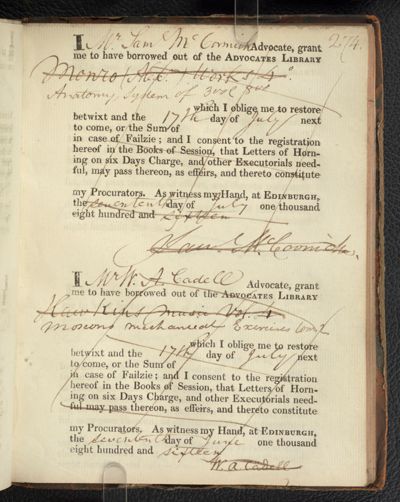 274.
I Mr Saml McCormick Advocate, grant
me to have borrowed out of the ADVOCATES LIBRARY
Monro Alexr Works 4o.
Anatomy System of 3 vol 8vo
which I oblige me to restore
betwixt and the 17th day of July next
to come, or the Sum of
in case of Failzie; and I consent to the registration
hereof in the Books of Session, that Letters of Horn-
ing on six Days Charge, and other Executorials need-
ful, may pass thereon, as effeirs, and thereto constitute
my Procurators. As witness my Hand, at EDINBURGH,
the sevententh day of July one thousand
eight hundred and sixteen
Saml McCormick
I Mr W. A. Cadell Advocate, grant
me to have borrowed out of the ADVOCATES LIBRARY
Hawkins Music Vol. 4
mechanical Exercises
which I oblige me to restore
betwixt and the 17th day of July next
to come, or the Sum of
in case of Failzie; and I consent to the registration
hereof in the Books of Session, that Letters of Horn-
ing on six Days Charge, and other Executorials need-
ful may pass thereon, as effeirs, and thereto constitute
my Procurators. As witness my Hand, at EDINBURGH,
the sevententh day of June one thousand
eight hundred and sixteen
W. A Cadell